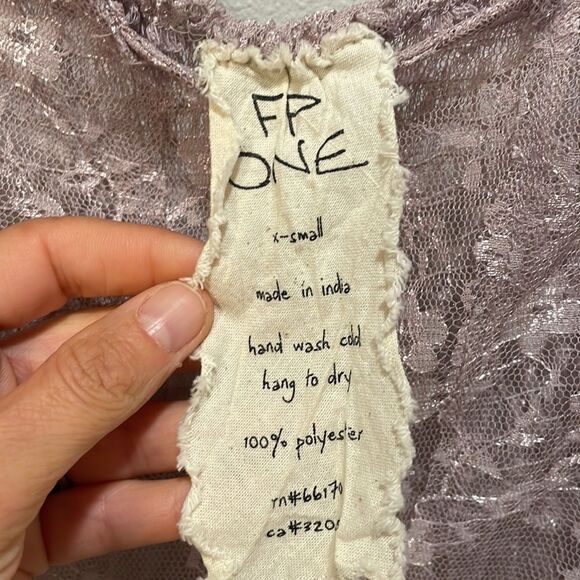 FP
ONE
x-small
made in india
hand wash cold
hang to dry
100% polyester
rn#66170
ca#320